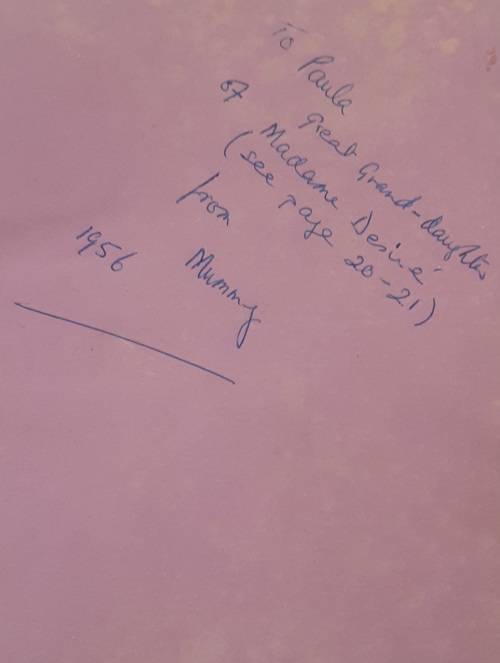 To Paula
Great Grand-daughter
of Madame Desiré
(see page 20-21)
from
Mummy
1956